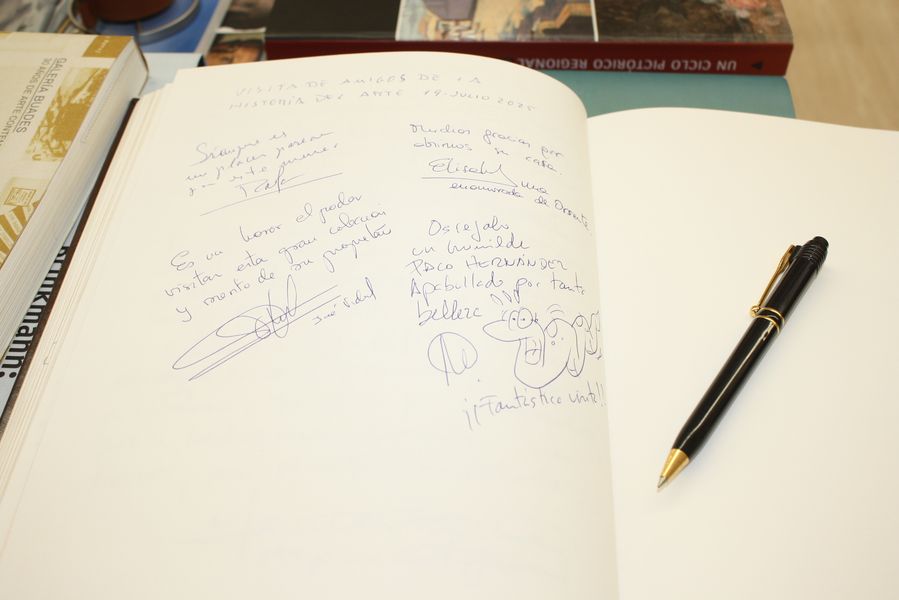 VISITA DE AMIGOS DE LA
HISTORIA DEL ARTE 19-JULIO 2025
Siempre es
un placer pasear
por este
Rafa
Es un honor el poder
visitar esta gran colección
y mérito de su propietario
José Vidal
Muchas gracias por
abrirnos su casa.
Elisabet una
enamorada de
Os regalo
un humilde
PACO HERNÁNDEZ
Apabullado por tanta
belleza
¡¡Fantástica visita!!
GALERÍA BUADES
30 AÑOS DE ARTE CONTEM
UN CICLO PICTÓRICO REGIONAL